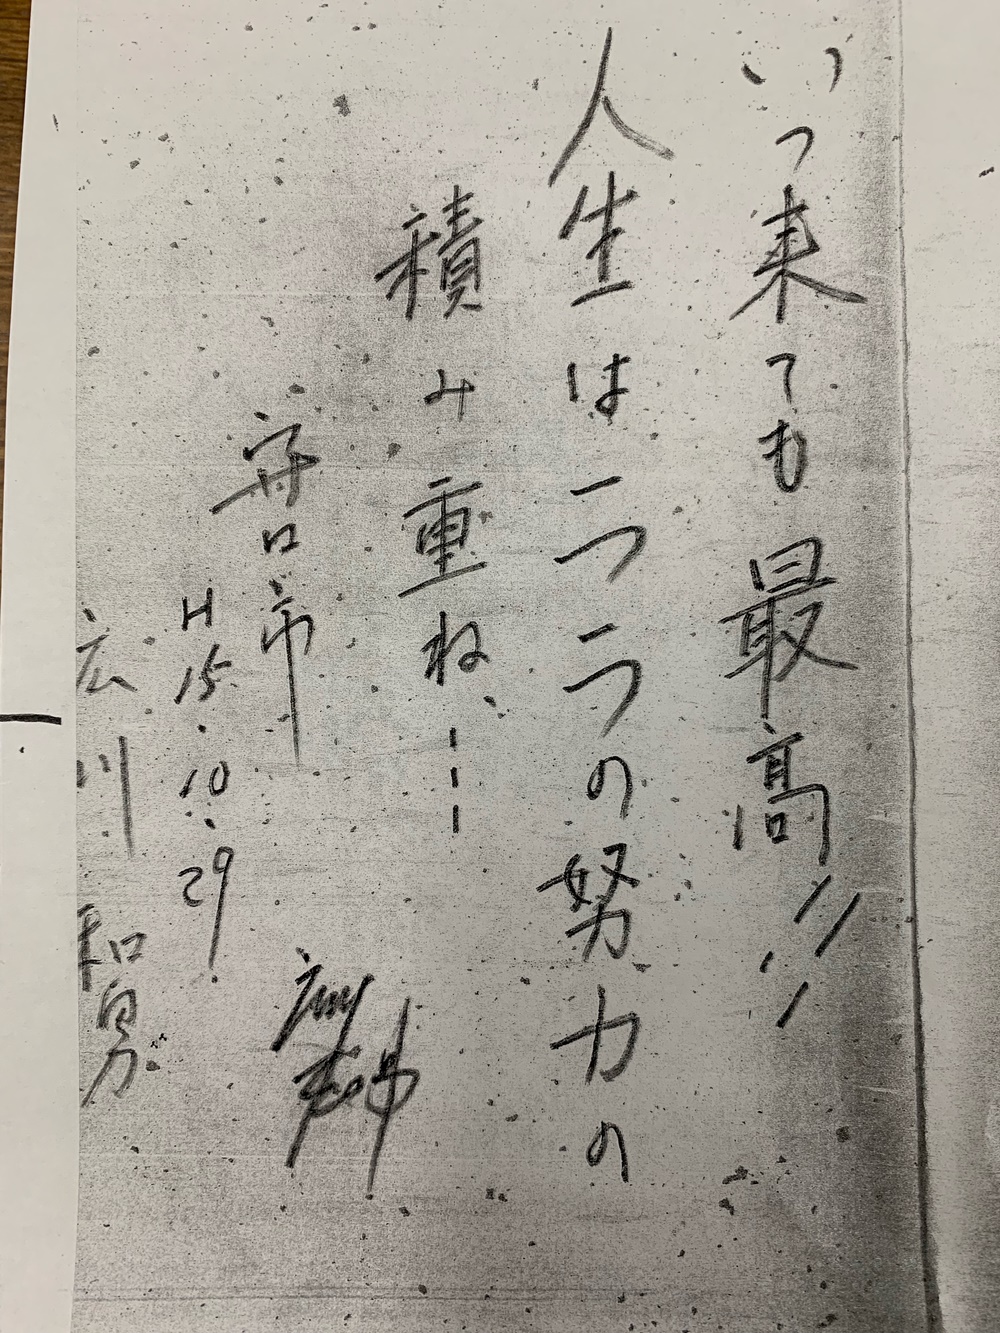 いつ来ても最高!!
人生は一つ一つの努力の
積み重ね、---
守口市
H15.10.29
広川和男